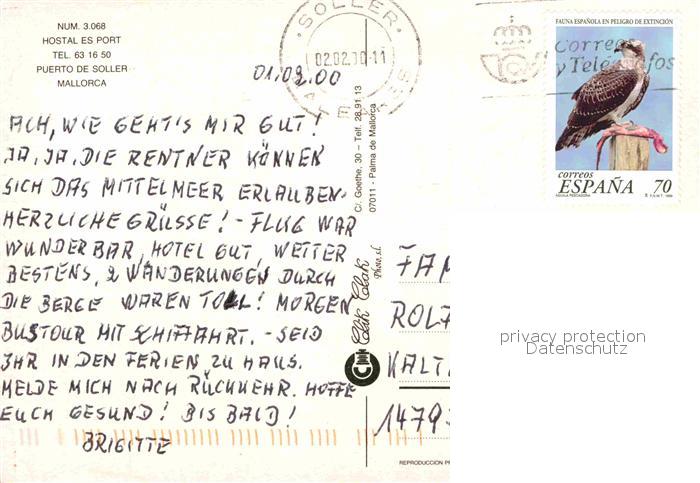 NUM. 3.068
HOSTAL ES PORT
TEL. 63 16 50
PUERTO DE SOLLER
MALLORCA
SOLLER
02.02.00-11
01.02.00
ACH, WIE GEHT'S MIR GUT!
JA, JA, DIE RENTNER KÖNNEN
SICH DAS MITTELMEER ERLAUBEN.
HERZLICHE GRÜSSE! - FLUG WAR
WUNDERBAR, HOTEL GUT, WETTER
BESTENS, 2 WANDERUNGEN DURCH
DIE BERGE WAREN TOLL! MORGEN
BUSTOUR MIT SCHIFFAHRT. - SEID
IHR IN DEN FERIEN ZU HAUS.
MELDE MICH NACH RÜCKKEHR. HOFFE
EUCH GESUND! BIS BALD!
BRIGITTE
C/. Goethe, 30 – Telf. 28 91 13
07011 - Palma de Mallorca
Clik Clak
Photo s.l.
REPRODUCCION PR
Correos
y Telégrafos
FAUNA ESPAÑOLA EN PELIGRO DE EXTINCIÓN
correos
ESPAÑA 70
AGUILA PESCADORA
FAM
ROLF
KALT
1479
privacy protection
Datenschutz